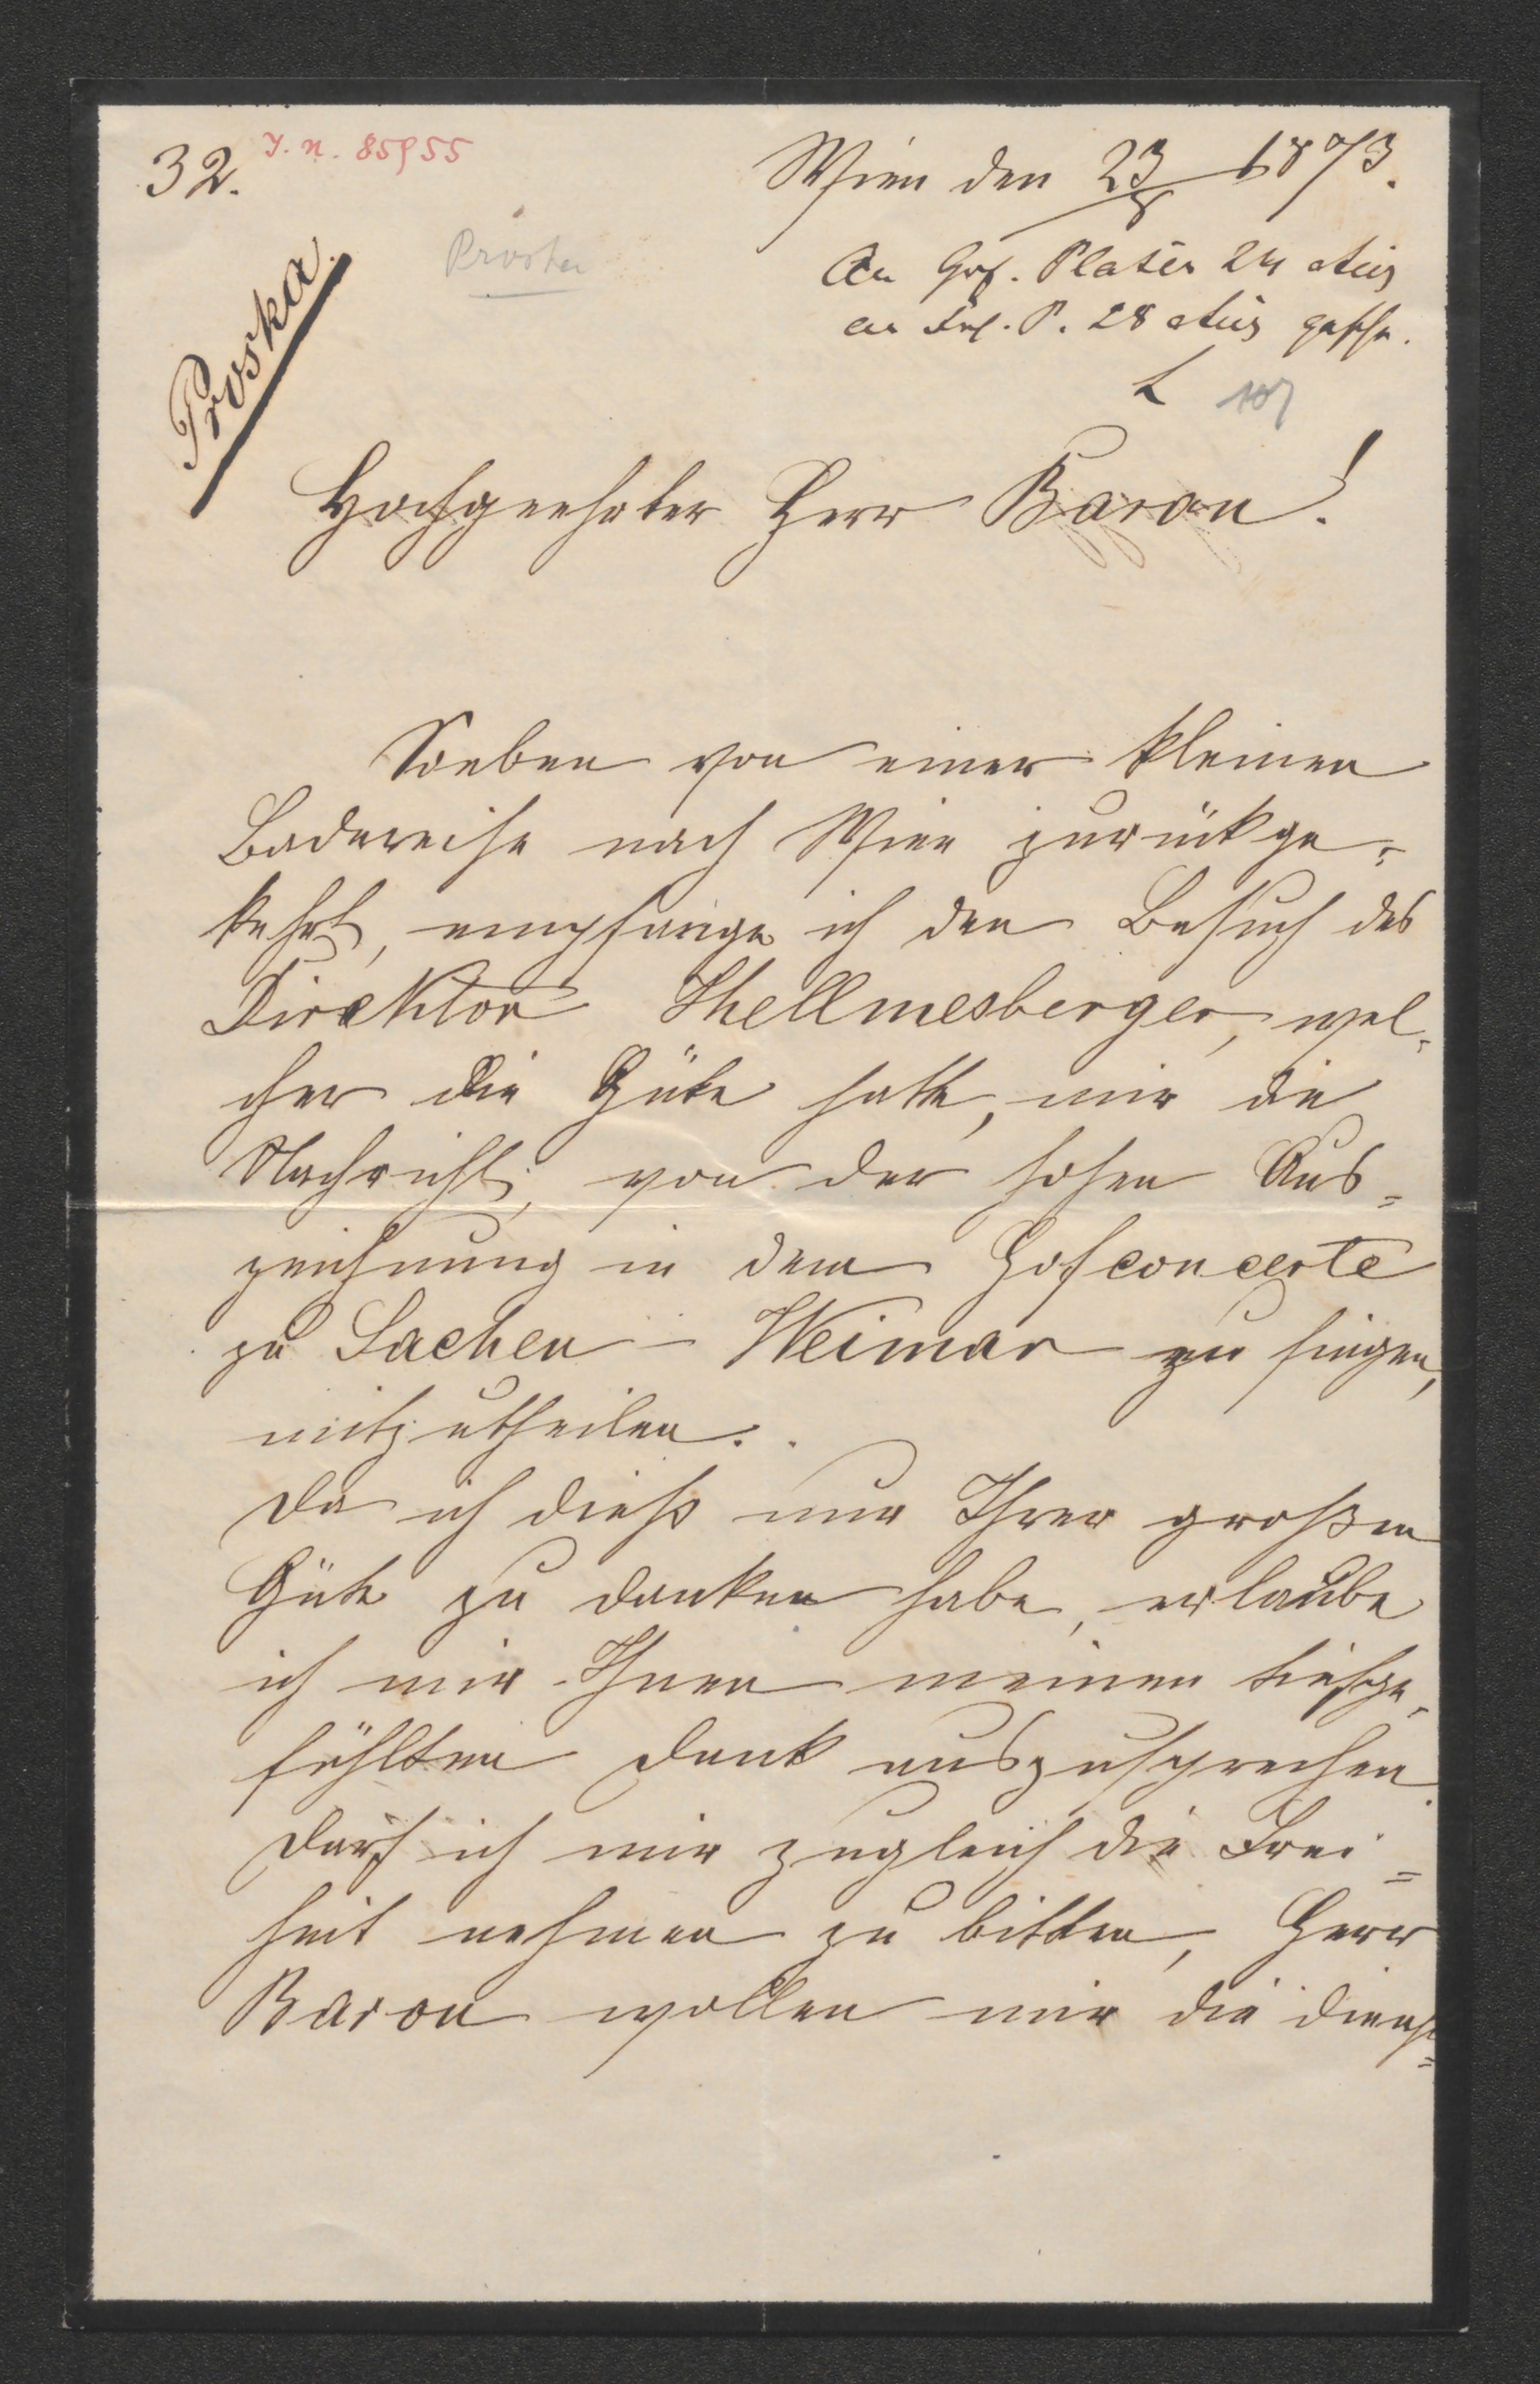 32. J. n. 85955
Wien den 23/8 1873.
Proska
An Grf. Plater 24 Aug
an Frl. P. 28 Aug geschr.
L
Proska.
Hochgeehrter Herr Baron!
Soeben von einer kleinen
Badereise nach Wien zurückge-
kehrt, empfange ich den Besuch des
Direktor Hellmesberger, wel-
cher die Güte hatte, mir die
Nachricht, von der hohen Aus=
zeichnung in dem Hofconcerte
zu Sachen-Weimar zu singen,
mitzutheilen.
Da ich dieß nur Ihrer großen
Güte zu danken habe, erlaube
ich mir Ihnen meinen tiefge-
fühlten Dank auszusprechen.
Darf ich mir zugleich die Frei=
heit nehmen zu bitten, Herr
Baron wollen mir die dienst=